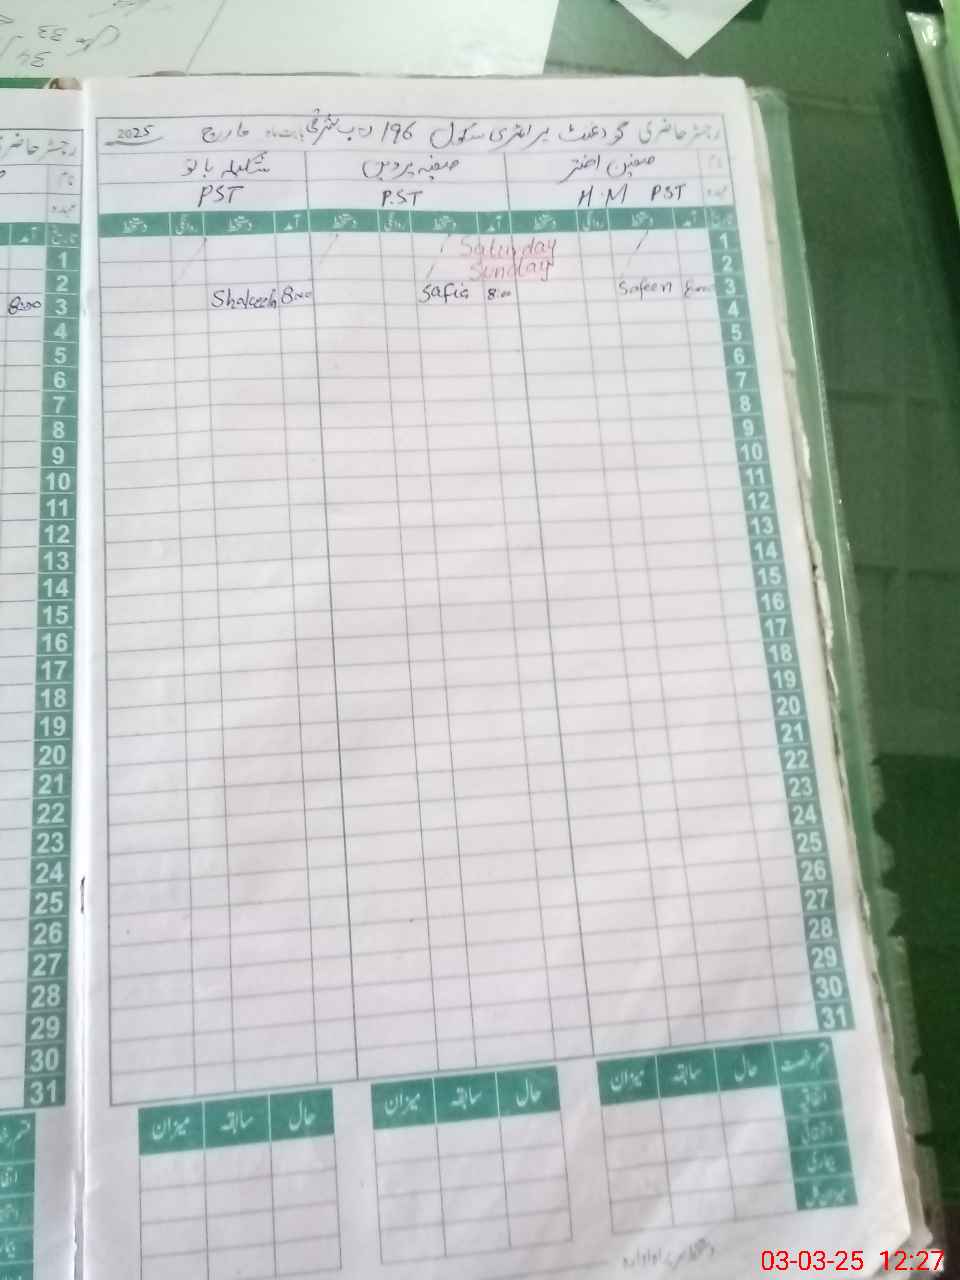 33
34
رجسٹر حاضری گورنمنٹ پرائمری سکول 196 ر ب شرقی بابت ماہ مارچ 2025
نام صفین اختر صفیہ پروین شکیلہ بانو
عہدہ H.M PST P.ST PST
تاریخ آمد دستخط روانگی دستخط آمد دستخط روانگی دستخط آمد دستخط روانگی دستخط
1 Saturday
2 Sunday
3 8:00 Safeen 8:00 Safia 8:00 Shakeela
4
5
6
7
8
9
10
11
12
13
14
15
16
17
18
19
20
21
22
23
24
25
26
27
28
29
30
31
رجسٹر حاضری
نام
عہدہ
تاریخ آمد
1
2
3 8:00
4
5
6
7
8
9
10
11
12
13
14
15
16
17
18
19
20
21
22
23
24
25
26
27
28
29
30
31
قسم رخصت حال سابقہ میزان حال سابقہ میزان حال سابقہ میزان
اتفاقیہ
استحقاقی
بیماری
میزان کل
03-03-25 12:27